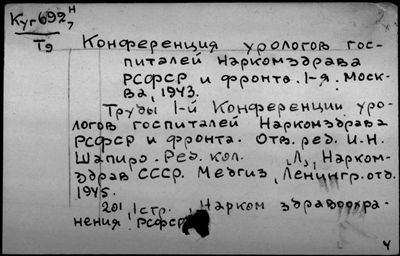 Куг692 н
7
Т9
Конференция урологов гос-
питалей Наркомздрава
РСФСР и фронта. 1-я. Моск-
ва, 1943.
Труды 1-й Конференции уро-
логов госпиталей Наркомздрава
РСФСР и фронта. Отв. ред. И.Н.
Шапиро. Ред. кол. Л, Нарком-
здрав СССР. Медгиз, Ленингр. отд.
1945.
201, 1 стр., Нарком здравоохра-
нения РСФСР
4